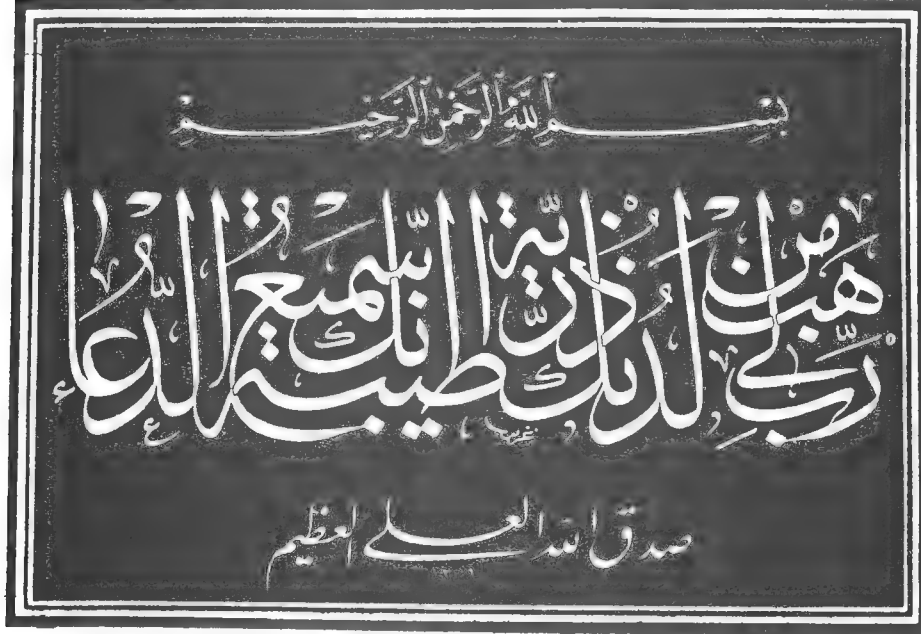 بِسْمِ اللّٰهِ الرَّحْمٰنِ الرَّحِيْمِ
رَبِّ هَبْ لِي مِنْ لَدُنْكَ ذُرِّيَّةً طَيِّبَةً اِنَّكَ سَمِيعُ الدُّعَاءِ
صدق الله العلي العظيم